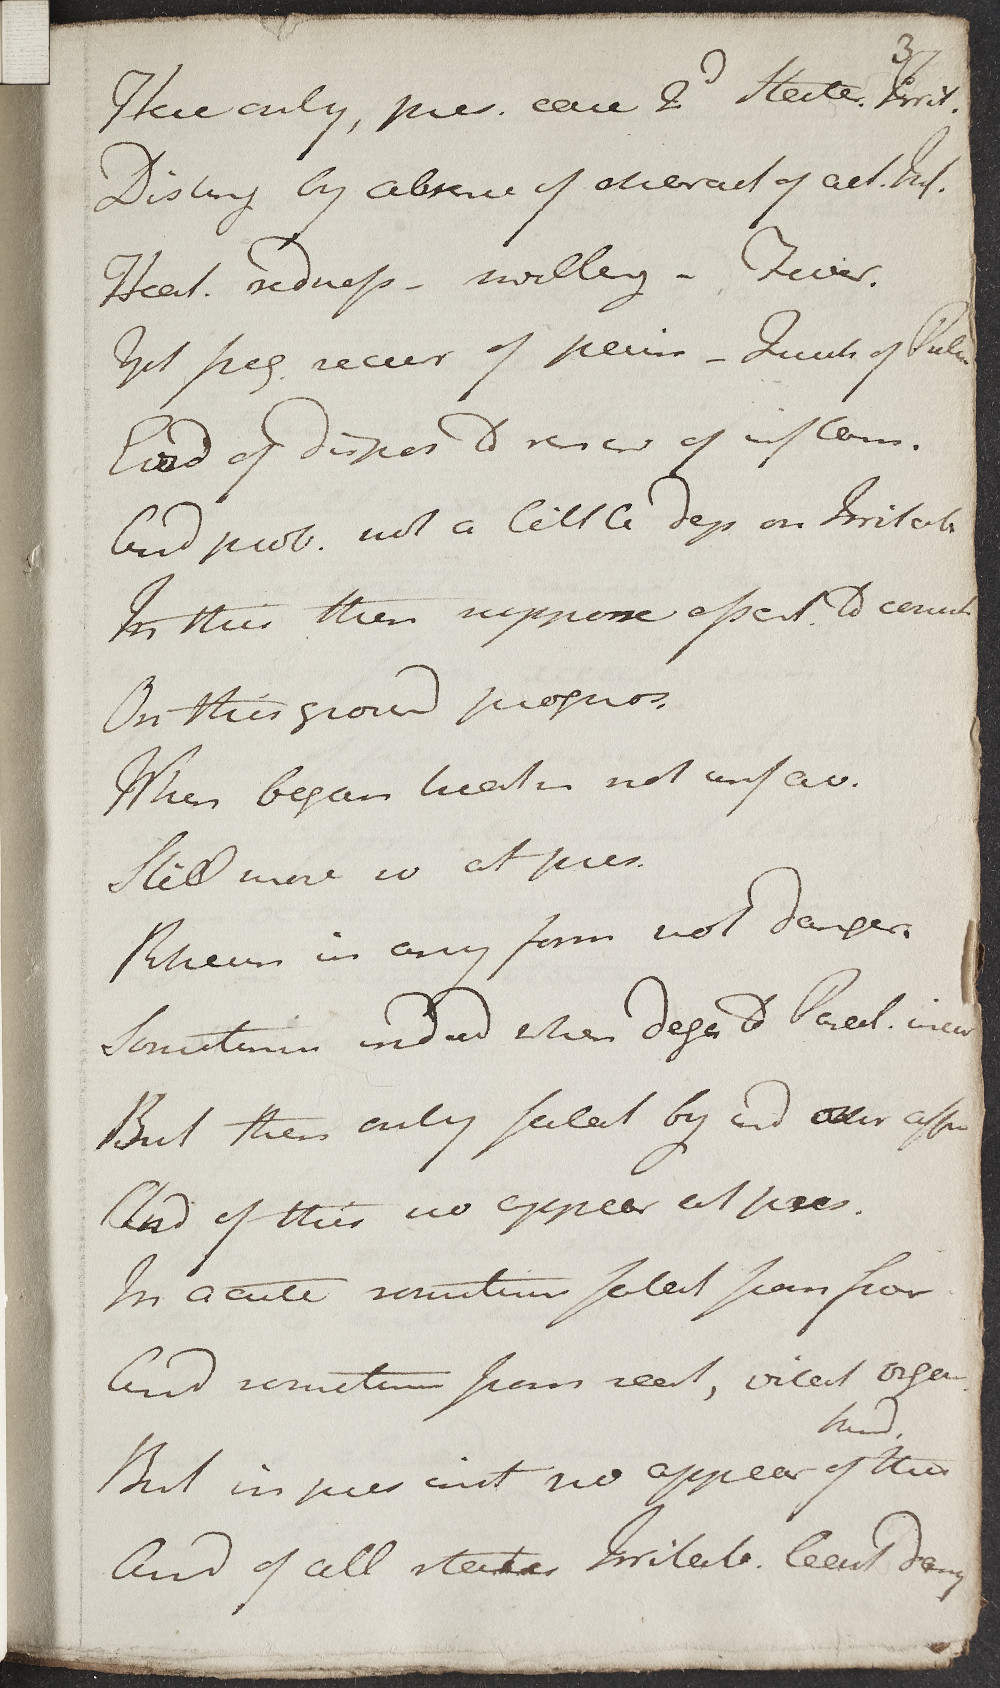 37
Here only, pres. case 2d State. Irrit.
Disting by absence of charact of act. Inf.
Heat. redness - swelling - Fever.
Yet freq. recur of pain - of Pulse
Evid of dispos to renew of inflam.
And prob. not a little dep on Irritab
In this then suppose essent. to consist
On this ground prognos.
When began treatm not unfav.
Still more so at pres.
Rheum in any form not danger.
Sometimes indeed when degen to Paral. incur
But then only fatal by ind over affec
And of this no appear at pres.
In acute sometimes fatal from fever
And sometimes from seat, vital organ
hund.
But in pres inst no appear of this
And of all states Irritab. least dang